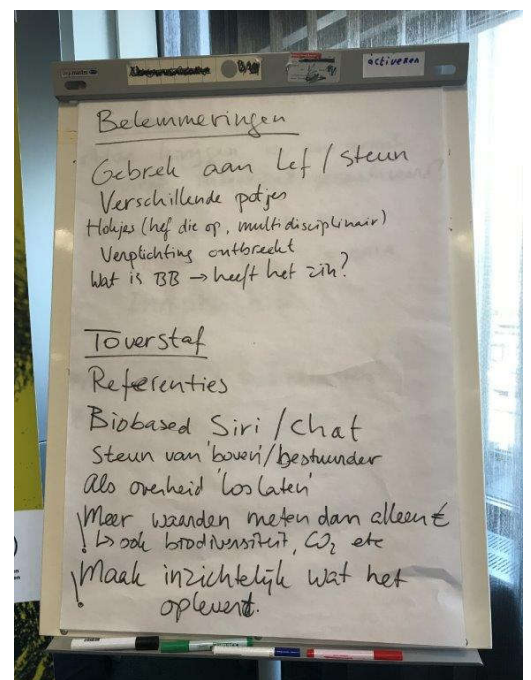 activeren
Belemmeringen
Gebrek aan lef / steun
Verschillende potjes
Hokjes (hef die op, multidisciplinair)
Verplichting ontbreekt
Wat is BB → heeft het zin?
Toverstaf
Referenties
Biobased Siri / chat
Steun van 'boven'/bestuurder
Als overheid 'loslaten'
! Meer waarden meten dan alleen €
↳ ook biodiversiteit, CO₂ etc
! Maak inzichtelijk wat het
oplevert.